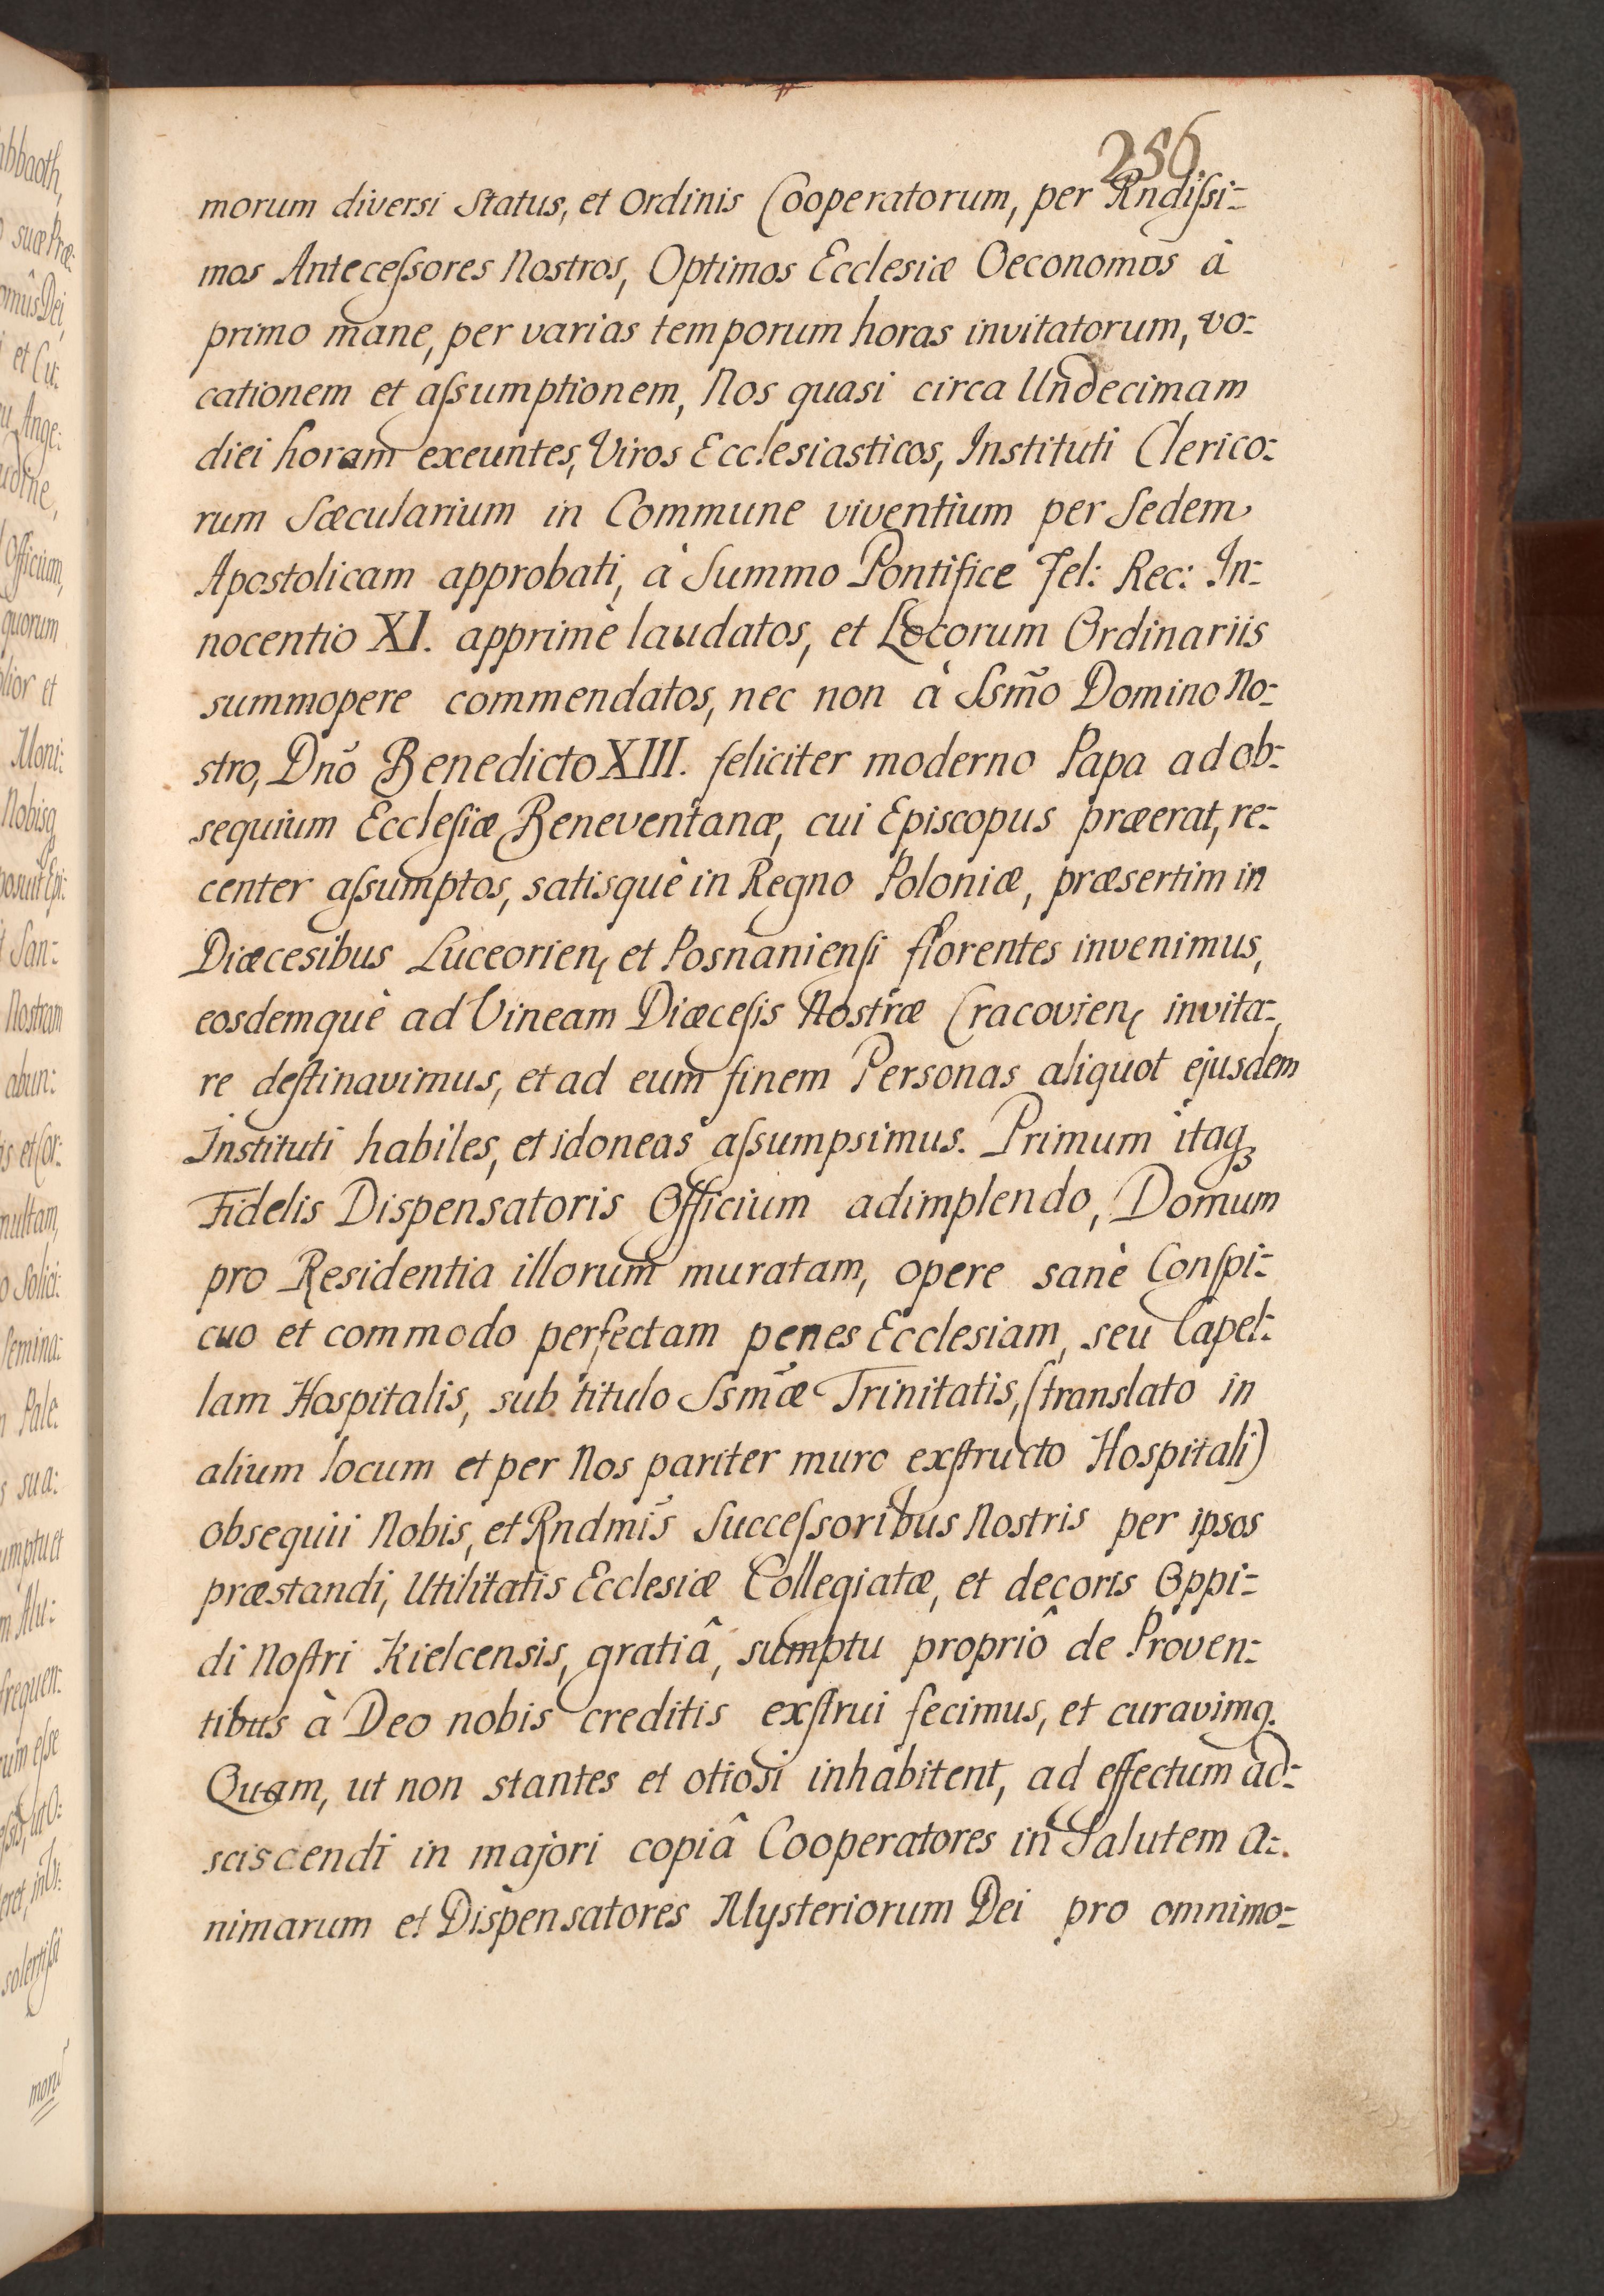 256
morum diversi Status, et Ordinis Cooperatorum, per Rndiſsi=
mos Anteceſsores Nostros, Optimos Ecclesiæ Oeconomos à
primo mane, per varias temporum horas invitatorum, vo=
cationem et aſsumptionem, Nos quasi circa Undecimam
diei horam exeuntes, Viros Ecclesiasticos, Instituti Clerico=
rum Sæcularium in Commune viventium per Sedem
Apostolicam approbati, à Summo Pontifice Fel: Rec: In=
nocentio XI. apprimè laudatos, et Locorum Ordinariis
summopere commendatos, nec non à Ssm̃o Domino No=
stro, Dnõ Benedicto XIII. feliciter moderno Papa ad ob=
sequium Eccleſiæ Beneventanæ, cui Episcopus præerat, re=
center aſsumptos, satisquè in Regno Poloniæ, præsertim in
Diæcesibus Luceorien, et Posnanienſi florentes invenimus,
eosdemquè ad Vineam Diæceſis Nostræ Cracovien, invita=
re deſtinavimus, et ad eum finem Personas aliquot ejusdem
Instituti habiles, et idoneas aſsumpsimus. Primum itaqꝫ
Fidelis Dispensatoris Officium adimplendo, Domum
pro Residentia illorum muratam, opere sanè Conſpi=
cuo et commodo perfectam penes Ecclesiam, seu Capel=
lam Hospitalis, sub titulo Ssm̃æ Trinitatis, (translato in
alium locum et per Nos pariter muro exſtructo Hospitali)
obsequii Nobis, et Rndmĩs Succeſsoribus Nostris per ipsos
præstandi, Utilitatis Ecclesiæ Collegiatæ, et decoris Oppi=
di Noſtri Kielcensis, gratiâ, sumptu propriô de Proven=
tibus à Deo nobis creditis exſtrui fecimus, et curavimq.
Quam, ut non stantes et otiosi inhabitent, ad effectum ad=
sciscendi in majori copiâ Cooperatores in Salutem A=
nimarum et Dispensatores Mysteriorum Dei pro omnimo=